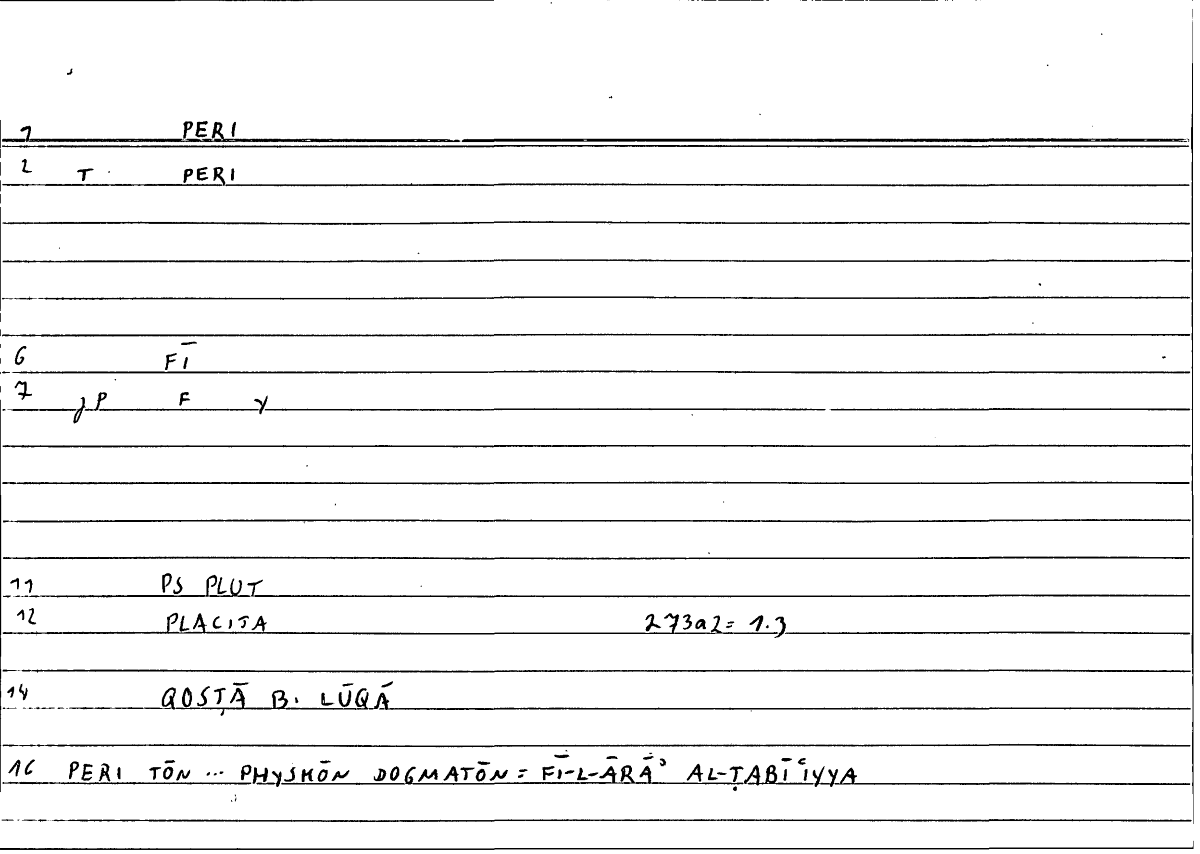 1 PERI
2 T PERI
6 FĪ
7 jP F Y
11 PS PLUT
12 PLACITA 273a2= 1.3
14 QOSṬĀ B. LŪQĀ
16 PERI TŌN ... PHYSKŌN DOGMATŌN = FĪ-L-ĀRĀʾ AL-ṬABĪʿIYYA